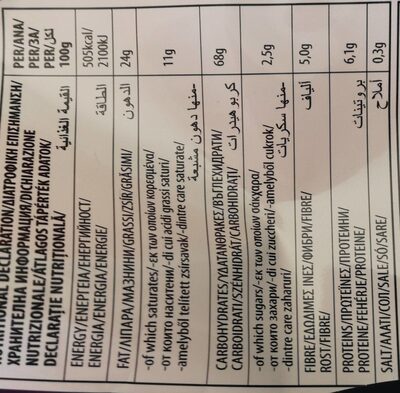 NUTRITIONAL DECLARATION/ΔΙΑΤΡΟΦΙΚΗ ΕΠΙΣΗΜΑΝΣΗ/
ХРАНИТЕЛНА ИНФОРМАЦИЯ/DICHIARAZIONE
NUTRIZIONALE/ÁTLAGOS TÁPÉRTÉK ADATOK/
DECLARAȚIE NUTRIȚIONALĂ/ القيمة الغذائية
PER/ΑΝΑ/
PER/ЗА/
PER/لكل
100g
ENERGY/ΕΝΕΡΓΕΙΑ/ЕНЕРГИЙНОСТ/
ENERGIA/ENERGIA/ENERGIE/ الطاقة
505kcal/
2100kJ
FAT/ΛΙΠΑΡΑ/МАЗНИНИ/GRASSI/ZSÍR/GRĂSIMI/ الدهون
24g
-of which saturates/-εκ των οποίων κορεσμένα/
-от които наситени/-di cui acidi grassi saturi/
-amelyből telített zsírsavak/-dintre care saturate/
-منها دهون مشبعة
11g
CARBOHYDRATES/ΥΔΑΤΑΝΘΡΑΚΕΣ/ВЪГЛЕХИДРАТИ/
CARBOIDRATI/SZÉNHIDRÁT/CARBOHIDRAȚI/ كربوهيدرات
68g
-of which sugars/-εκ των οποίων σάκχαρα/
-от които захари/-di cui zuccheri/-amelyből cukrok/
-dintre care zaharuri/ -منها سكريات
2,5g
FIBRE/ΕΔΩΔΙΜΕΣ ΙΝΕΣ/ФИБРИ/FIBRE/
ROST/FIBRE/ ألياف
5,0g
PROTEINS/ΠΡΩΤΕΪΝΕΣ/ПРОТЕИНИ/
PROTEINE/FEHÉRJE/PROTEINE/ بروتينات
6,1g
SALT/ΑΛΑΤΙ/СОЛ/SALE/SÓ/SARE/ أملاح
0,3g